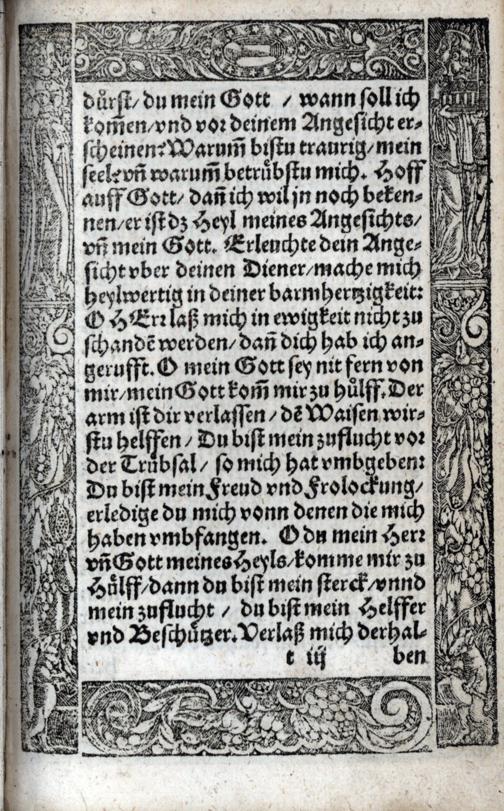 dürst/ du mein Gott / wann soll ich
kom̄en/vnd vor deinem Angesicht er⸗
scheinen? Warum̄ bistu traurig/mein
seel? vn̄ warum̄ betrübstu mich. Hoff
auff Gott/ dan̄ ich wil jn noch beken⸗
nen/er ist dz Heyl meines Angesichts/
vn̄ mein Gott. Erleuchte dein Ange⸗
sicht vber deinen Diener/mache mich
heylwertig in deiner barmhertzigkeit:
O HErr laß mich in ewigkeit nicht zu
schandē werden/ dan̄ dich hab ich an⸗
gerufft. O mein Gott sey nit fern von
mir/mein Gott kom̄ mir zu hülff. Der
arm ist dir verlassen / dē Waisen wir⸗
stu helffen / Du bist mein zuflucht vor
der Trübsal/ so mich hat vmbgeben:
Du bist mein Freud vnd Frolockung/
erledige du mich vonn denen die mich
haben vmbfangen. O du mein Herr
vn̄ Gott meines Heyls/komme mir zu
Hülff/dann du bist mein sterck/vnnd
mein zuflucht / du bist mein Helffer
vnd Beschützer. Verlaß mich derhal⸗
t iij ben